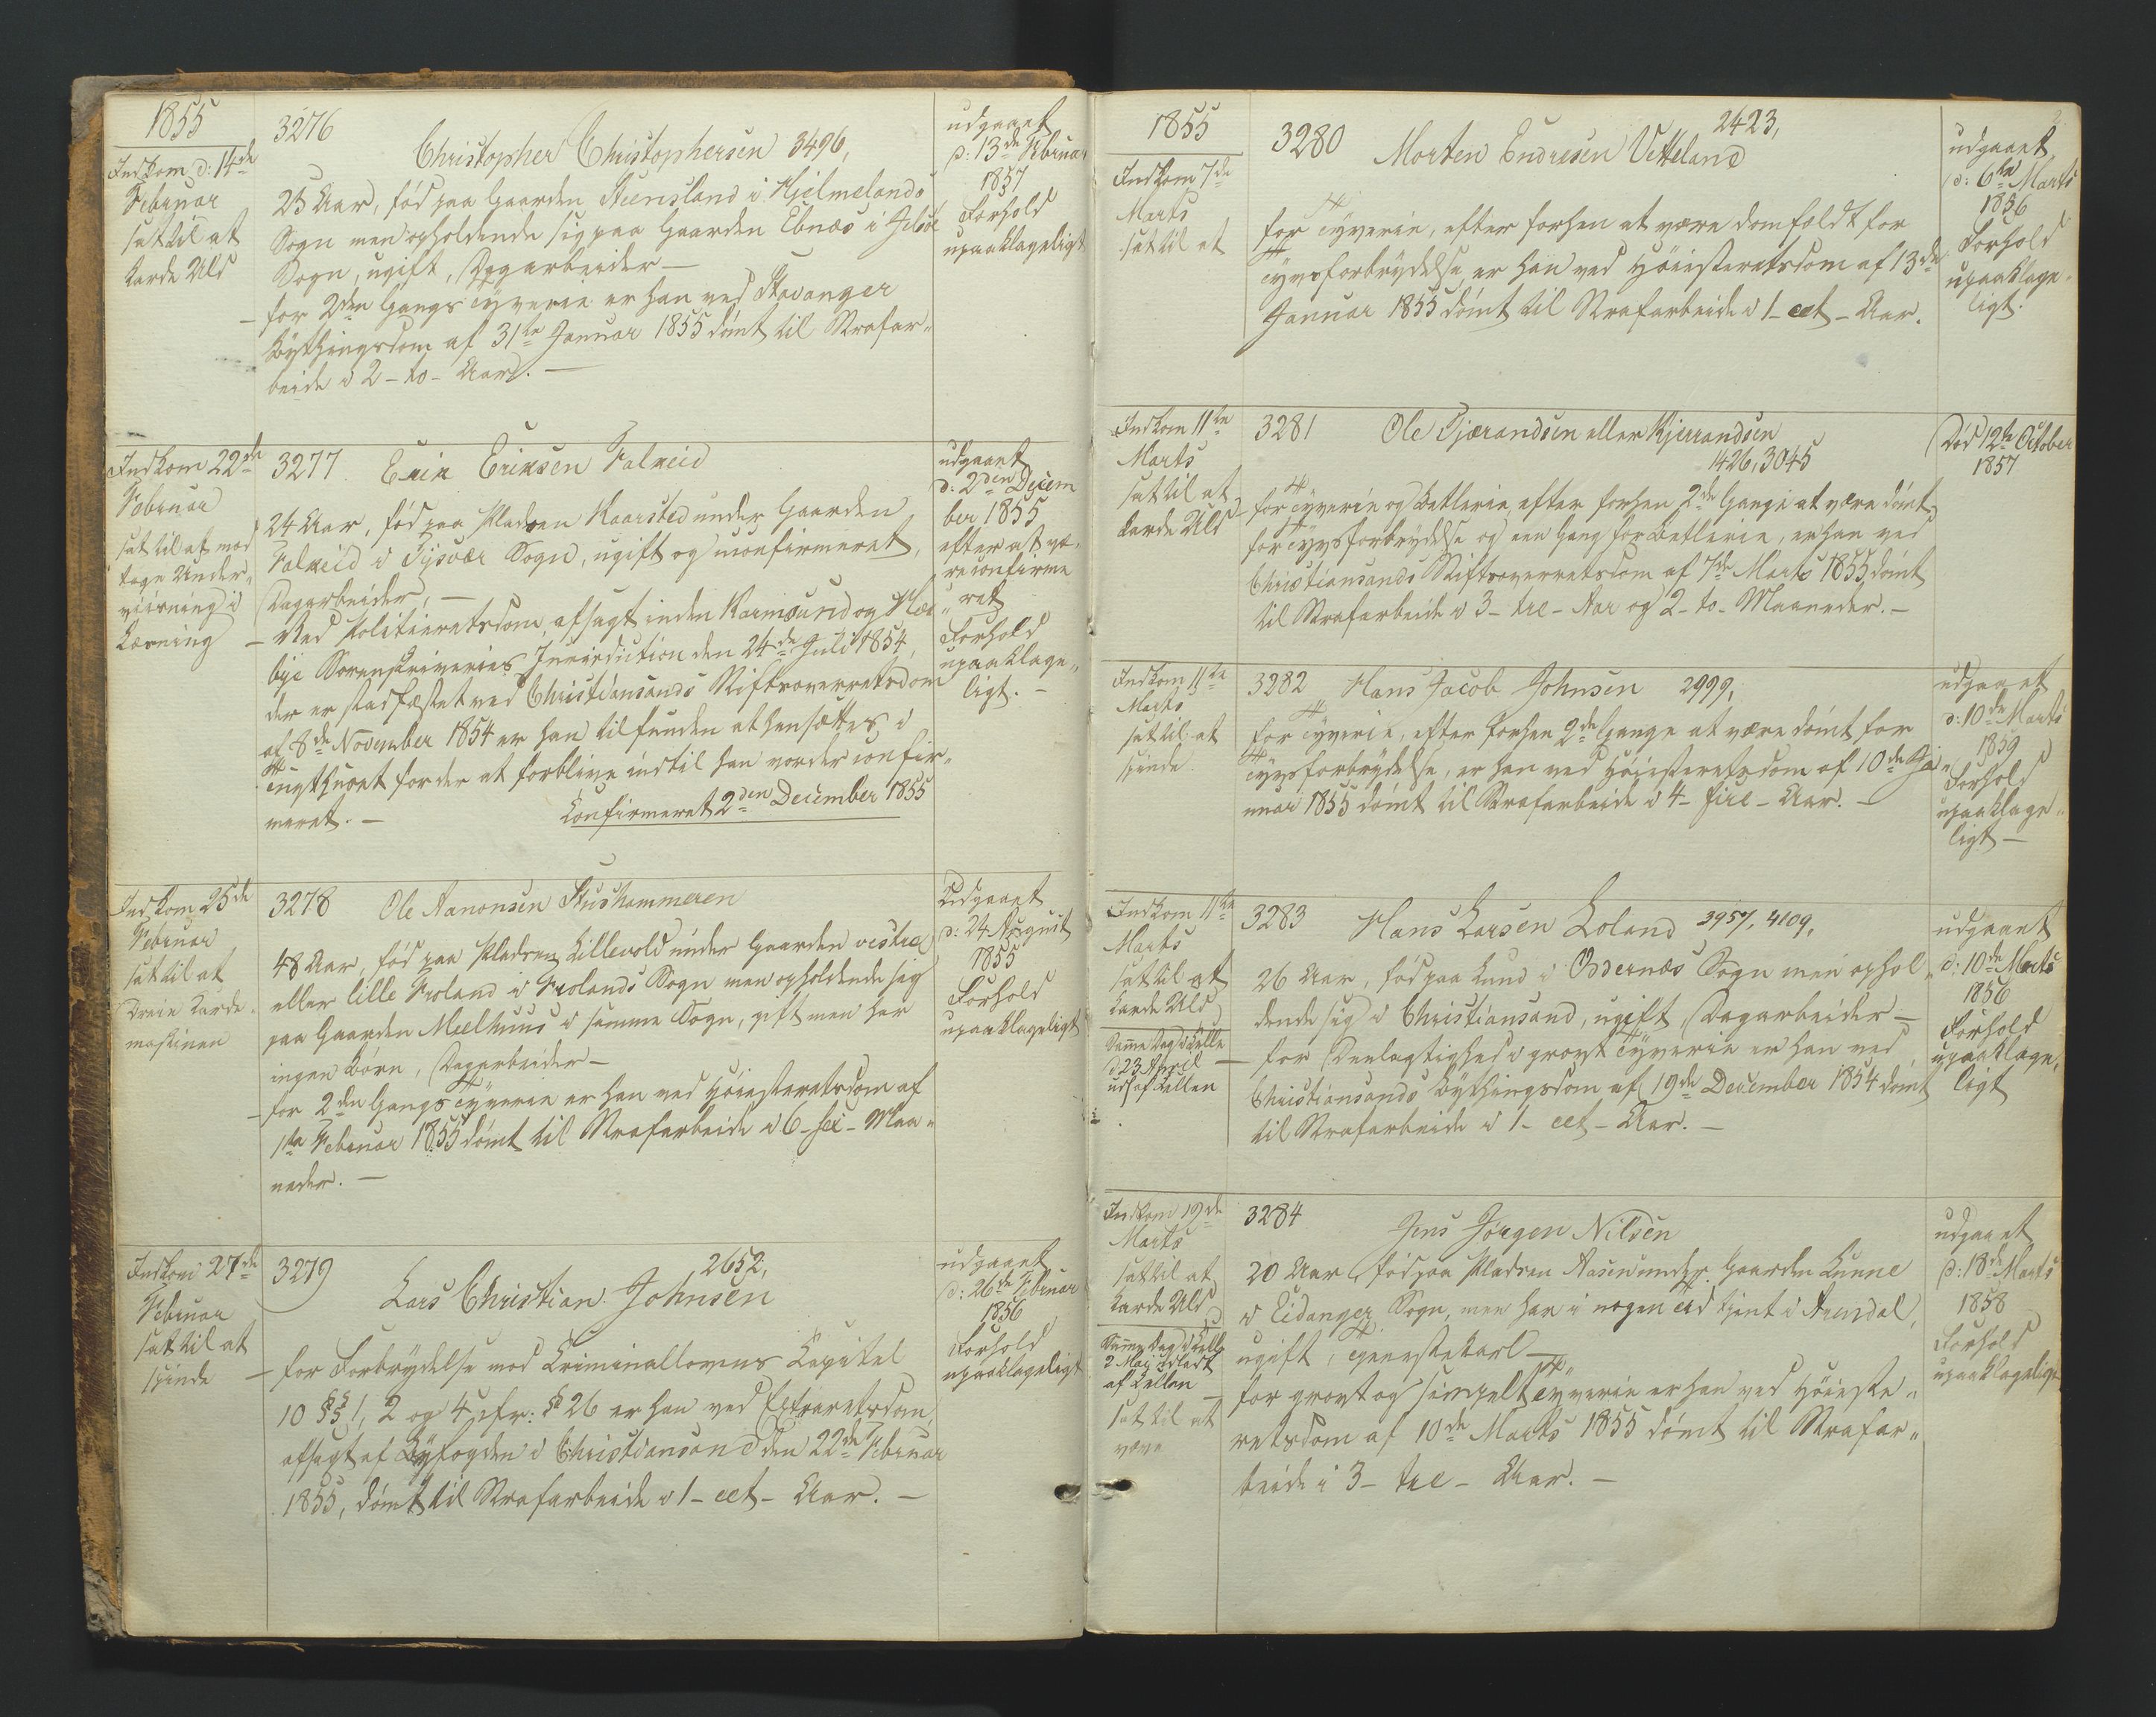 1855
Indkom d: 14de
Februar
sat til at
karde Uld
3276
Christopher Christophersen 3496,
23 Aar, fød paa Gaarden Steensland i Hjelmelands
Sogn men opholdende sig paa Gaarden Ebnæs i Jelsøe
Sogn, ugift, Dagarbeider —
— for 2den Gangs Tyverie er han ved Stavanger
Bythingsdom af 31te Januar 1855 dømt til Strafar„
beide i 2 – to – Aar. —
udgaaet
d: 13de Februar
1857
Forhold
upaaklageligt
Indkom 22de
Februar
sat til at mod
tage Under„
viisning i
Læsning
3277 Erik Eriksen Falkeid
24 Aar, fød paa Pladsen Kaarsted under Gaarden
Falkeid i Tysvær Sogn, ugift og uconfirmeret,
Dagarbeider, —
— Ved Politieretsdom, afsagt inden Karmsund og Hes
bye Sorenskriveries Jurisdiction den 24de Juli 1854,
der er stadfæstet ved Christiansands Stiftsoverretsdom
af 8de November 1854 er han tilfunden at hensættes i
Tugthuset for der at forblive indtil han vorder confir„
meret. —
Confirmeret 2den December 1855
udgaaet
d: 2den Decem
ber 1855
efter at væ„
re confirme
„ret
Forhold
upaaklage„
ligt. —
Indkom 25de
Februar
sat til at
dreie Karde„
maskinen
3278 Ole Aanonsen Stushammeren
48 Aar, fød paa Pladsen Lillevold under Gaarden vestre
eller lille Froland i Frolands Sogn men opholdende sig
paa Gaarden Mælhuus i samme Sogn, gift men har
ingen Børn, Dagarbeider —
— for 2den Gangs Tyverie er han ved Høiesteretsdom af
1ste Februar 1855 dømt til Strafarbeide i 6 – sex – Maa„
neder. —
Udgaaet
d: 24 August
1855
Forhold
upaaklageligt
Indkom 27de
Februar
sat til at
spinde
3279
2652,
Lars Christian Johnsen
— for Forbrydelse mod Criminallovens Capitel
10 §§ 1, 2 og 4 cfr: § 26 er han ved Extraretsdom,
afsagt af Byfogden i Christiansand den 22de Februar
1855, dømt til Strafarbeide i 1 – eet – Aar. —
udgaaet
d: 26de Februar
1856
Forhold
upaaklageligt
1855
Indkom 7de
Marts
sat til at
3280
2423,
Morten Endresen Vetteland
for Tyverie, efter forhen at være domfældt for
Tyvsforbrydelse er han ved Høiesteretsdom af 13de
Januar 1855 dømt til Strafarbeide i 1 – eet – Aar.
udgaaet
d: 6te Marts
1856
Forhold
upaaklage„
ligt.
Indkom 11te
Marts
sat til at
karde Uld
3281 Ole Tjærandsen eller Kjerrandsen
1426, 3045
for Tyverie og Betlerie efter forhen 2de Gange at være dømt
for Tyvsforbrydelse og een Gang for Betlerie, er han ved
Christiansands Stiftsoverretsdom af 7de Marts 1855 dømt
til Strafarbeide i 3 – tre – Aar og 2 – to – Maaneder. —
Død 12te October
1857
Indkom 11te
Marts
sat til at
spinde
3282 Hans Jacob Johnsen 2999,
for Tyverie, efter forhen 2de Gange at være dømt for
Tyvsforbrydelse, er han ved Høiesteretsdom af 10de Ja„
nuar 1855 dømt til Strafarbeide i 4 – fire – Aar. —
udgaaet
d: 10de Marts
1859
Forhold
upaaklage„
ligt —
Indkom 11te
Marts
sat til at
karde Uld
Samme Dag i Celle
d 23 April
ud af Cellen
3283 Hans Larsen Loland 3957, 4109,
26 Aar, fød paa Lund i Oddernæs Sogn men ophol„
dende sig i Christiansand, ugift, Dagarbeider —
— for Deelagtighed i grovt Tyverie er han ved
Christiansands Bythingsdom af 19de December 1854 dømt
til Strafarbeide i 1 – eet – Aar. —
udgaaet
d: 10de Marts
1856
Forhold
upaaklage„
ligt
Indkom 19de
Marts
sat til at
karde Uld
Samme Dag i Celle
2 May udladt
af Cellen
sat til at
væve
3284
Jens Jørgen Nilsen
20 Aar, fød paa Pladsen Aasen under Gaarden Lunne
i Eidanger Sogn, men har i nogen Tid tjent i Arendal,
ugift, Tjenestekarl —
— for grovt og simpelt Tyverie er han ved Høieste„
retsdom af 10de Marts 1855 dømt til Strafar„
beide i 3 – tre – Aar. —
udgaaet
d: 18de Marts
1858
Forhold
upaaklageligt